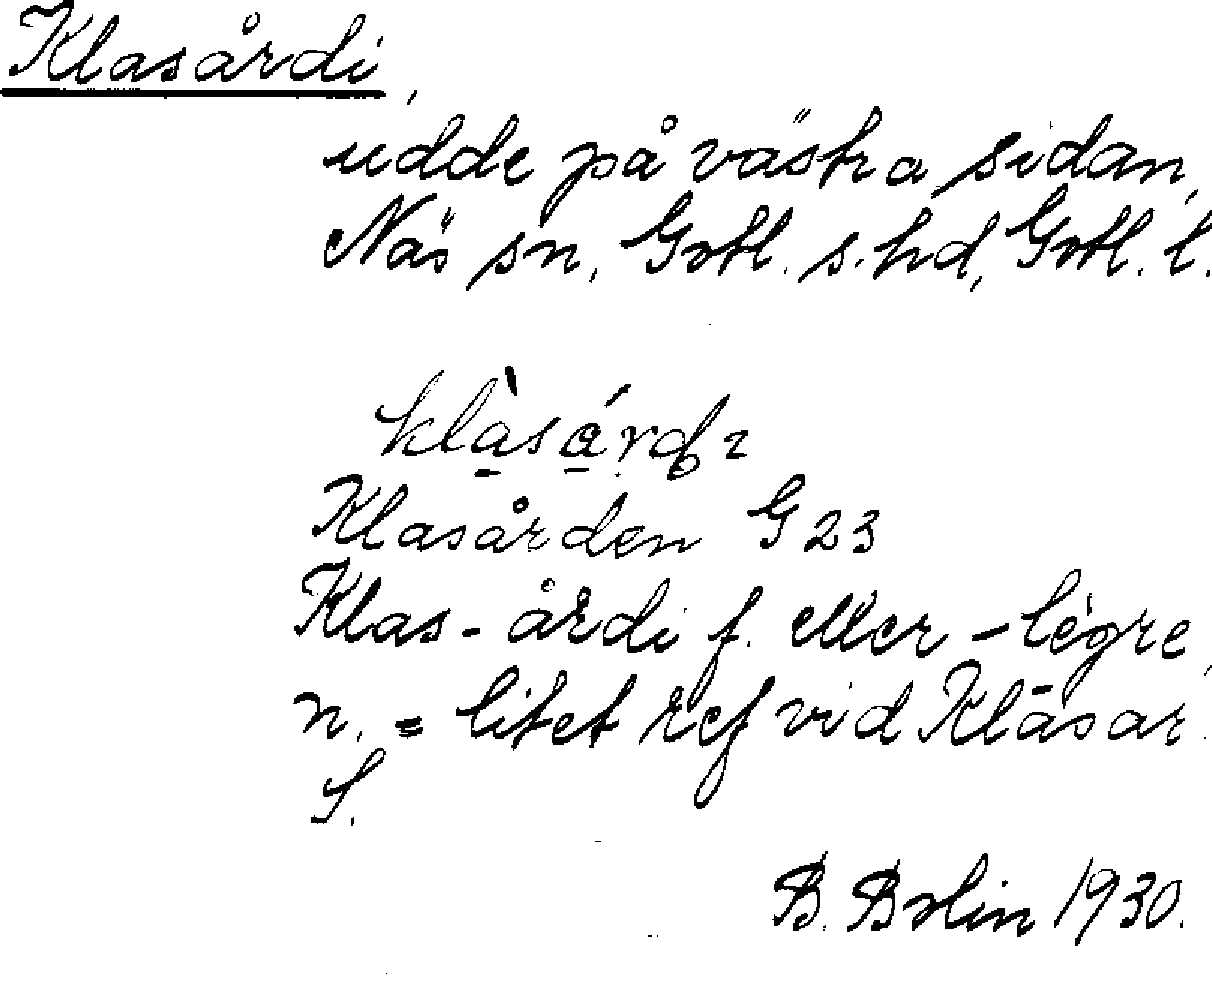 Klasårdi,
udde på västra sidan,
Näs sn, Gotl. s. hd, Gotl. l.
Klasården G 23
Klas-årdi f. eller -lègre,
n. = litet ref vid Klāsar.
S.
B. Bolin 1930.